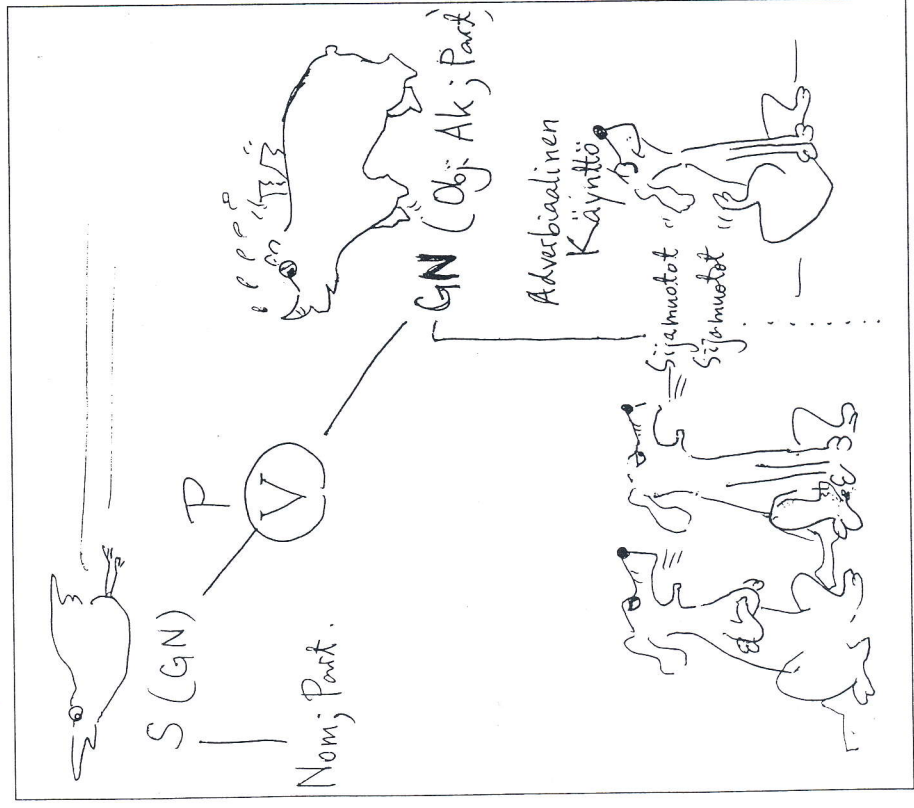 P
S (GN)
V
GN (Obj: Ak; Part)
Nom; Part.
Adverbiaalinen
Käynttö
Sijamuotot
Sijamuotot